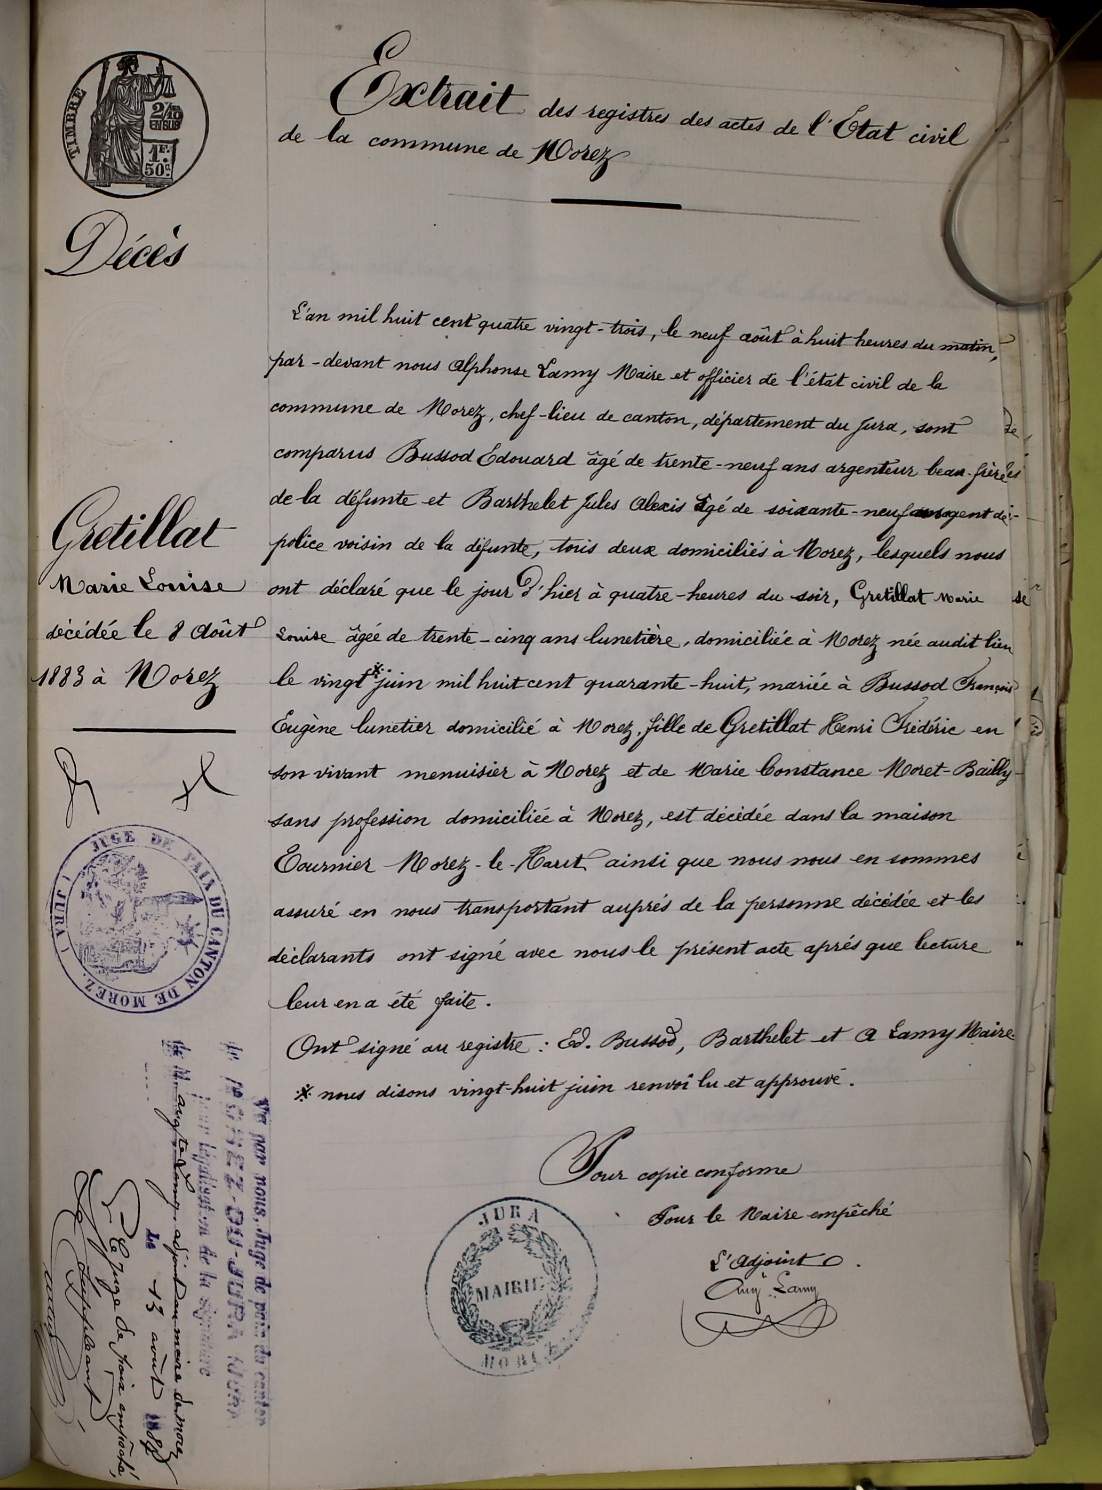 Extrait des registres des actes de l'Etat civil
de la commune de Morez
TIMBRE
2/10
EN SUS
1F.
50c.
Décès
Gretillat
Marie Louise
décédée le 8 Août
1883 à Morez
L'an mil huit cent quatre vingt-trois, le neuf août à huit heures du matin,
par-devant nous Alphonse Lamy Maire et officier de l'état civil de la
commune de Morez, chef-lieu de canton, département du Jura, sont
comparus Bussod Edouard âgé de trente-neuf ans argenteur beau-frère
de la défunte et Barthelet Jules Alexis âgé de soixante-neuf ans agent de
police voisin de la défunte, tous deux domiciliés à Morez, lesquels nous
ont déclaré que le jour d'hier à quatre-heures du soir, Gretillat Marie
Louise âgée de trente-cinq ans lunetière, domiciliée à Morez née audit lieu
le vingt * juin mil huit cent quarante-huit, mariée à Bussod François
Eugène lunetier domicilié à Morez, fille de Gretillat Henri Frédéric en
son vivant menuisier à Morez et de Marie Constance Moret-Bailly
sans profession domiciliée à Morez, est décédée dans la maison
Fournier Morez-le-Haut ainsi que nous nous en sommes
assuré en nous transportant auprés de la personne décédée et les
déclarants ont signé avec nous le présent acte aprés que lecture
leur en a été faite.
Ont signé au registre : Ed. Bussod, Barthelet et A Lamy Maire
* nous disons vingt-huit juin renvoi lu et approuvé.
Pour copie conforme
Pour le Maire empêché
L'Adjoint
Aug. Lamy
JURA
MAIRIE
MOREZ
JUGE DE PAIX DU CANTON DE MOREZ. (JURA)
Vu par nous, Juge de paix du canton
de MOREZ-DU-JURA (JURA)
pour légalisation de la signature
de M. Aug.te Lamy, adjoint au maire de Morez
Le 13 août 188
Le Juge de paix empêché,
Le Suppléant